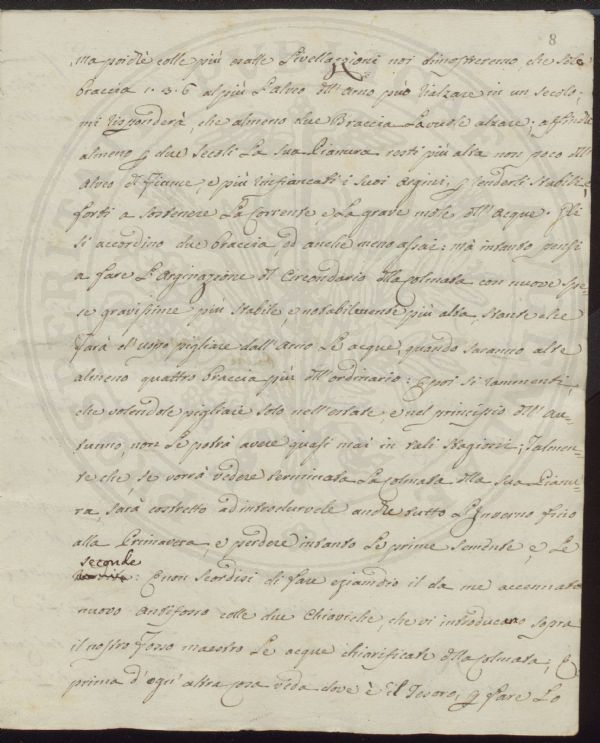 8
ma poichè colle più esatte Livellazioni noi dimostreremo che sole
braccia 1. 3. 6 al più L'alveo dll'Arno può rialzare in un secolo;
mi risponderà, che almeno due Braccia La vuole alzare; affinchè
almeno p due secoli La sua Pianura resti più alta non poco dll'
alveo dl fiume, e più rinfiancati i suoi argini, p renderli stabili, e
forti a sostenere La Corrente, e La grave mole dll'acque. Gli
si accordino due braccia, ed anche meno assai: mà intanto pensi
a fare L'Arginazione dl Circondario dlla Colmata con nuove spe-
se gravissime più stabile, e notabilmente più alta, stante che
farà d'uopo pigliare dall'Arno Le acque, quando saranno alte
almeno quattro braccia più dll'ordinario: E poi si rammenti,
che volendole pigliare solo nell'estate, e nel principio dll'Au-
tunno, non Le potrà avere quasi mai in tali stagioni; Talmen-
te che, se vorrà vedere terminata La Colmata dlla sua Pianu-
ra, sarà costretto ad introdurvele anche tutto L'Inverno fino
alla Primavera, e perdere intanto Le prime semente, e Le
seconde
: E non si scordi di fare eziandio il da me accennato
nuovo Antifosso colle due Chiaviche, che vi introducano sopra
il nostro Fosso maestro Le acque chiarificate dlla Colmata; E
prima d'ogn'altra cosa veda dove è il Tesoro, p fare Lo